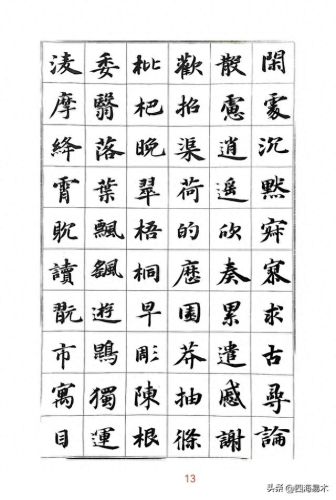 閑處沉默寂寥求古尋論
散慮逍遙欣奏累遣慼謝
歡招渠荷的歷園莽抽條
枇杷晚翠梧桐早彫陳根
委翳落葉飄颻遊鵾獨運
淩摩絳霄耽讀翫市寓目
13
头条 @四海易木